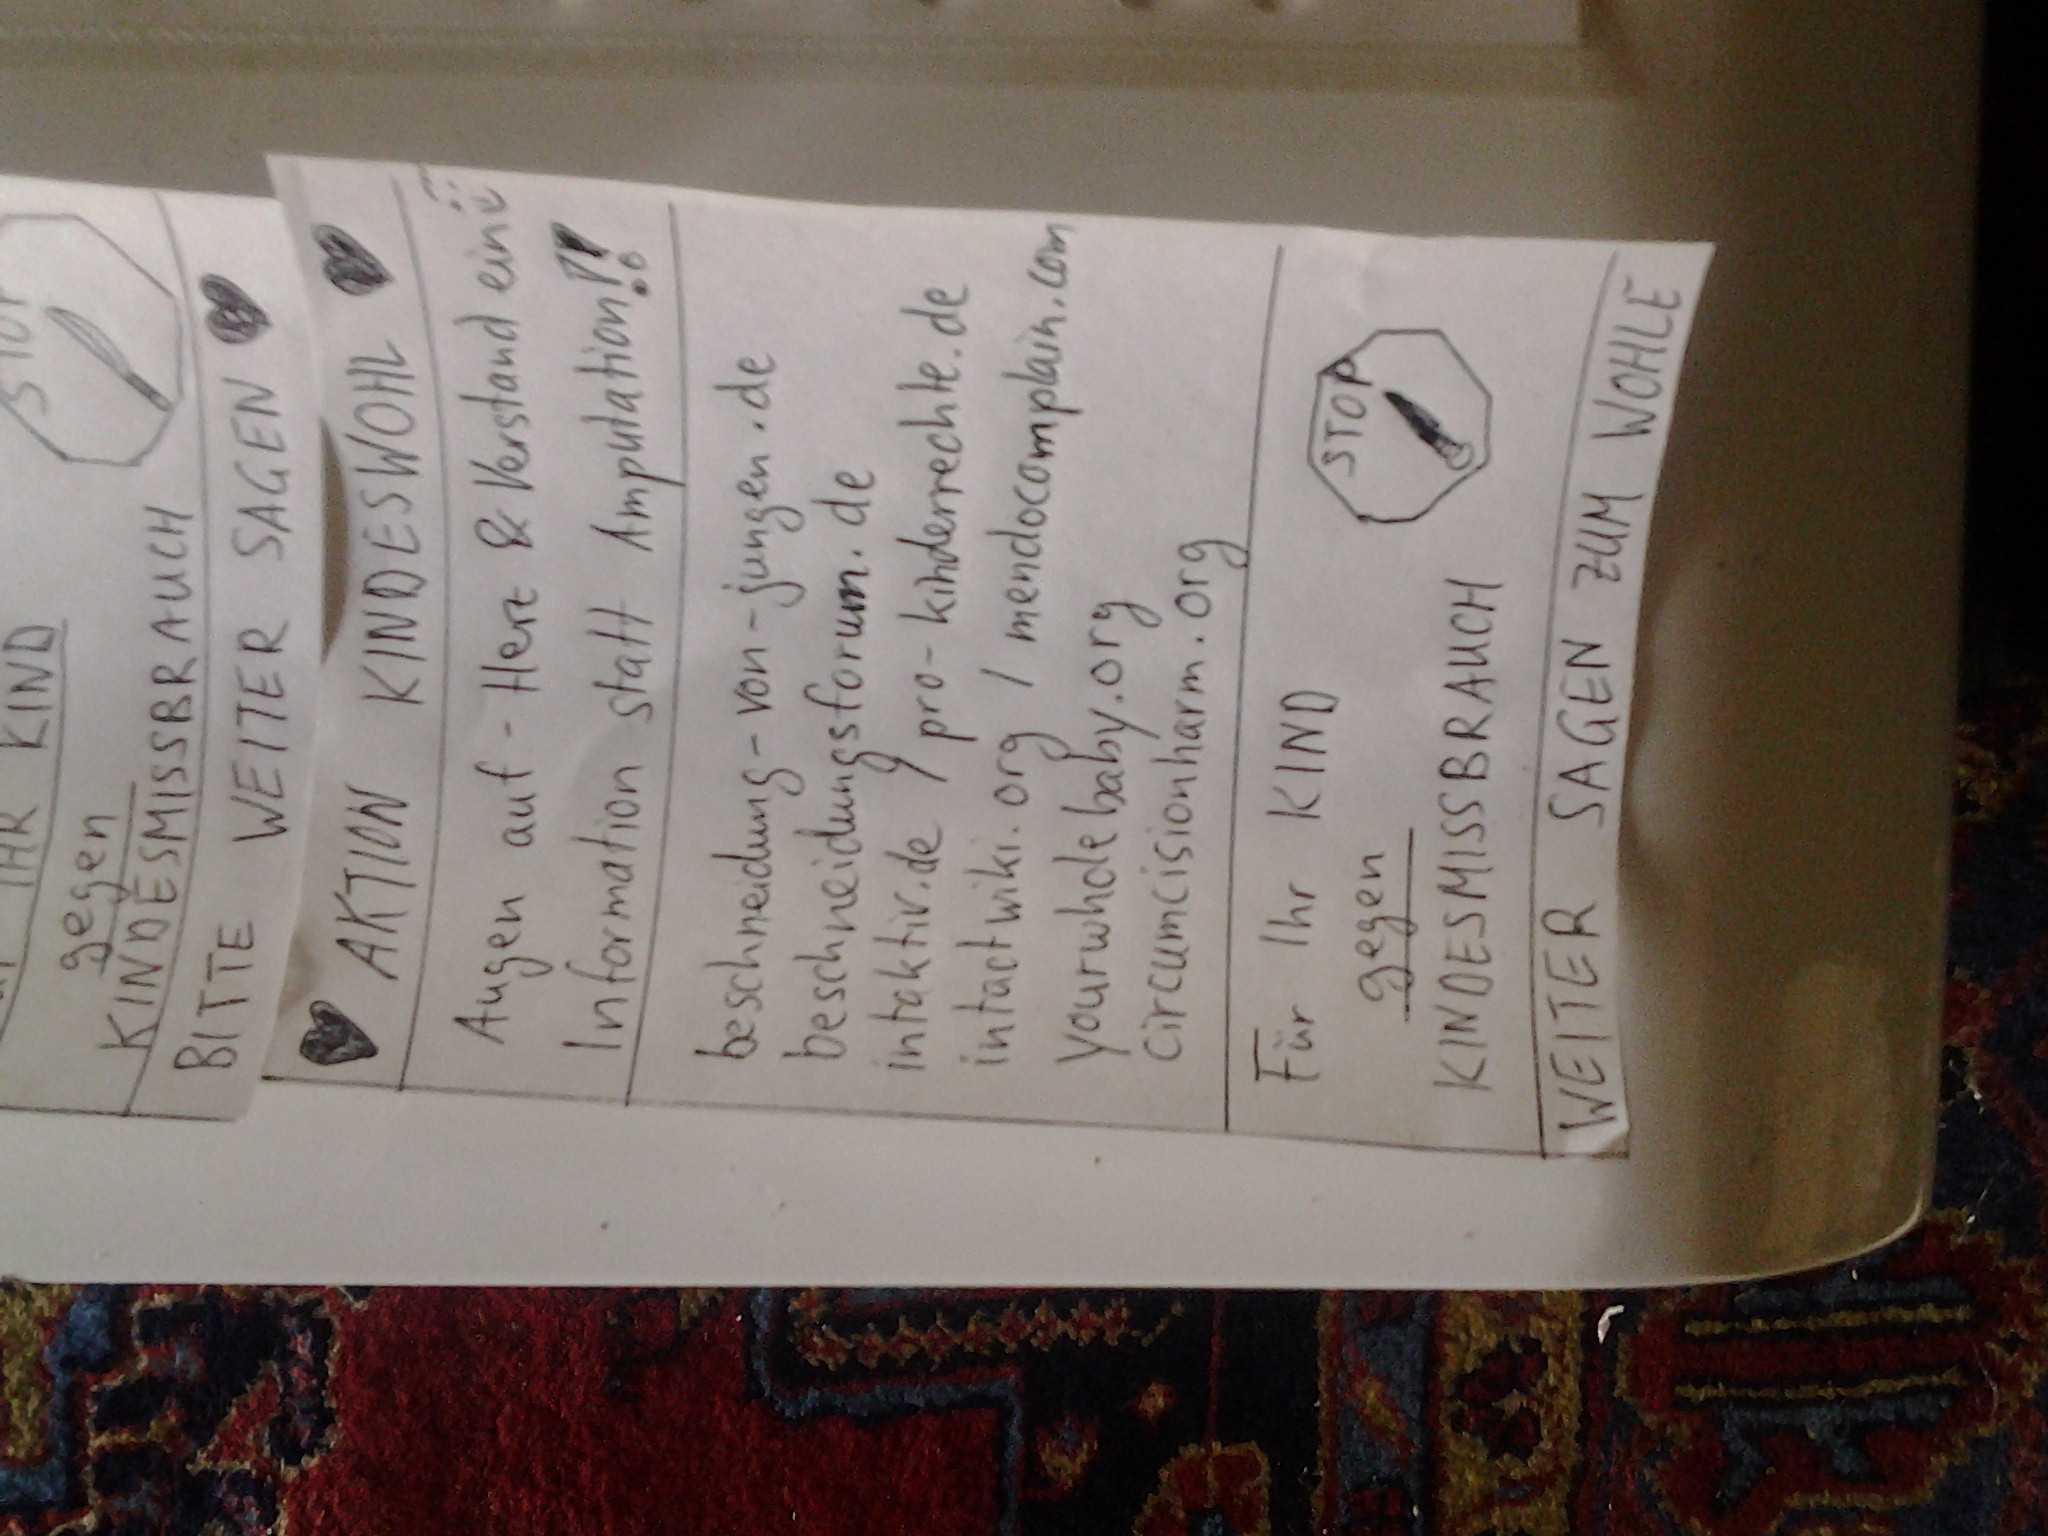 STOP
IHR KIND
gegen
KINDESMISSBRAUCH
BITTE WEITER SAGEN
AKTION KINDESWOHL
Augen auf - Herz & Verstand ein
Information statt Amputation!!
beschneidung-von-jungen.de
beschneidungsforum.de
intaktiv.de / pro-kinderrechte.de
intactwiki.org / mendocomplain.com
yourwholebaby.org
circumcisionharm.org
Für Ihr KIND
STOP
gegen
KINDESMISSBRAUCH
WEITER SAGEN ZUM WOHLE